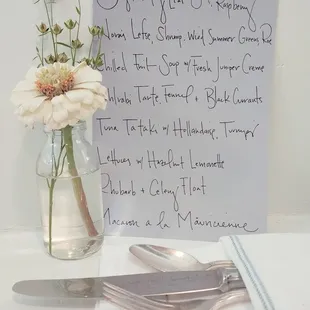 Raspberry
Nova's Lefse, Shrimp, Wild Summer Greens
Chilled Fruit Soup w/ Fresh Juniper Creme
Tarte, Fennel + Black Currants
Tuna Tataki w/ Hollandaise, Turnips
Lettuces w/ Hazelnut Lemonette
Rhubarb + Celery Float
Macaron a la Mauricienne